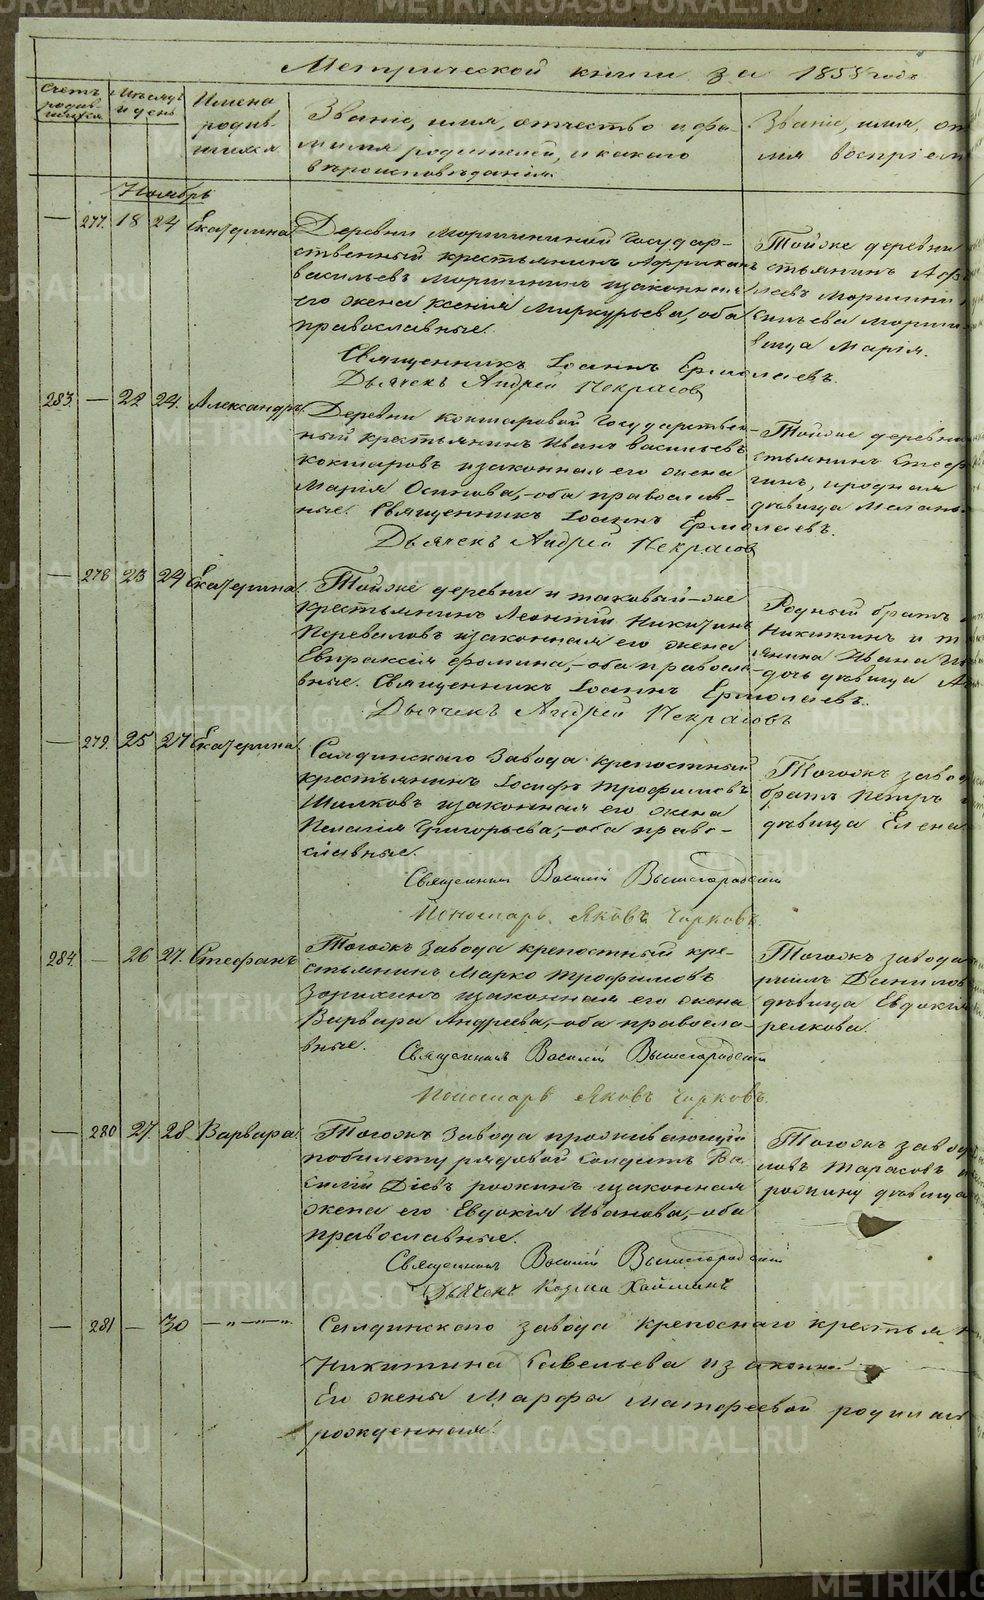 Метрической книги за 1858 годъ
Счетъ родив-шихся
Мѣсяцъ и день
Имена родив-шихся
Званіе, имя, отчество и фа-
милія родителей, и какого
вѣроисповѣданія.
Званіе, имя, от
лія воспріем
Ноябрь
— 277. 18 24 Екатерина
Деревни Моршининой Государ-
ственный крестьянинъ Африканъ
Васильевъ Моршининъ и законная
его жена Ксенія Меркурьева, оба
православные.
Священникъ Іоаннъ Ермолаевъ.
Дьячекъ Андрей Некрасов
Тойже деревни
стьянинъ Аф
леевъ Моршини
сильева Морши
вица Марія.
283. — 22 24. Александръ.
Деревни Кокшаровой Государствен-
ный крестьянинъ Иванъ Васильевъ
Кокшаровъ и законная его жена
Марія Осипова, – оба православ-
ные. Священникъ Іоаннъ Ермолаевъ.
Дьячекъ Андрей Некрасов
Тойже деревни
стьянинъ Стеф
гинъ, и родная
дѣвица Мелань
— 278 23 24 Екатерина.
Тойже деревни и таковый-же
крестьянинъ Леонтій Никитинъ
Переваловъ и законная его жена
Евпраксія Фомина, – оба правосла-
вные. Священникъ Іоаннъ Ермолаевъ.
Дьячекъ Андрей Некрасовъ
Родный братъ
Никитинъ и т
янина Ивана
дочь дѣвица А
— 279. 25 27 Екатерина.
Салдинскаго Завода крепостный
крестьянинъ Іосифъ Трофимовъ
Шилковъ и законная его жена
Пелагія Григорьева, – оба право-
славные.
Священникъ Василій Вышегородскій
Пономарь Яковъ Чирковъ
Тогожъ завод
братъ Петръ
дѣвица Елена
284. — 26 27. Стефанъ
Тогожъ Завода крепостный кре-
стьянинъ Марко Трофимовъ
Зорихинъ и законная его жена
Варвара Андреева, – оба правосла-
вные. Священникъ Василій Вышегородскій
Пономарь Яковъ Чирковъ.
Тогожъ завода
ріилъ Данилов
дѣвица Евдокія
релкова.
— 280 27. 28 Варвара.
Тогожъ Завода проживающій
по билету рядовой Солдатъ Ва-
силій Діевъ Рожинъ и законная
жена его Евдокія Иванова, – оба
православные.
Священникъ Василій Вышегородскій
Дьячекъ Козма Хайминъ
Тогожъ завод
ловъ Тарасовъ
рожину дѣвица
— 281 — 30 — „ — „ —
Салдинскаго завода крепоснаго крестьян
Никитина Савельева и законной
Его жены Марфы Матфеевой родилась
рожденная.
METRIKI.GASO-URAL.RU